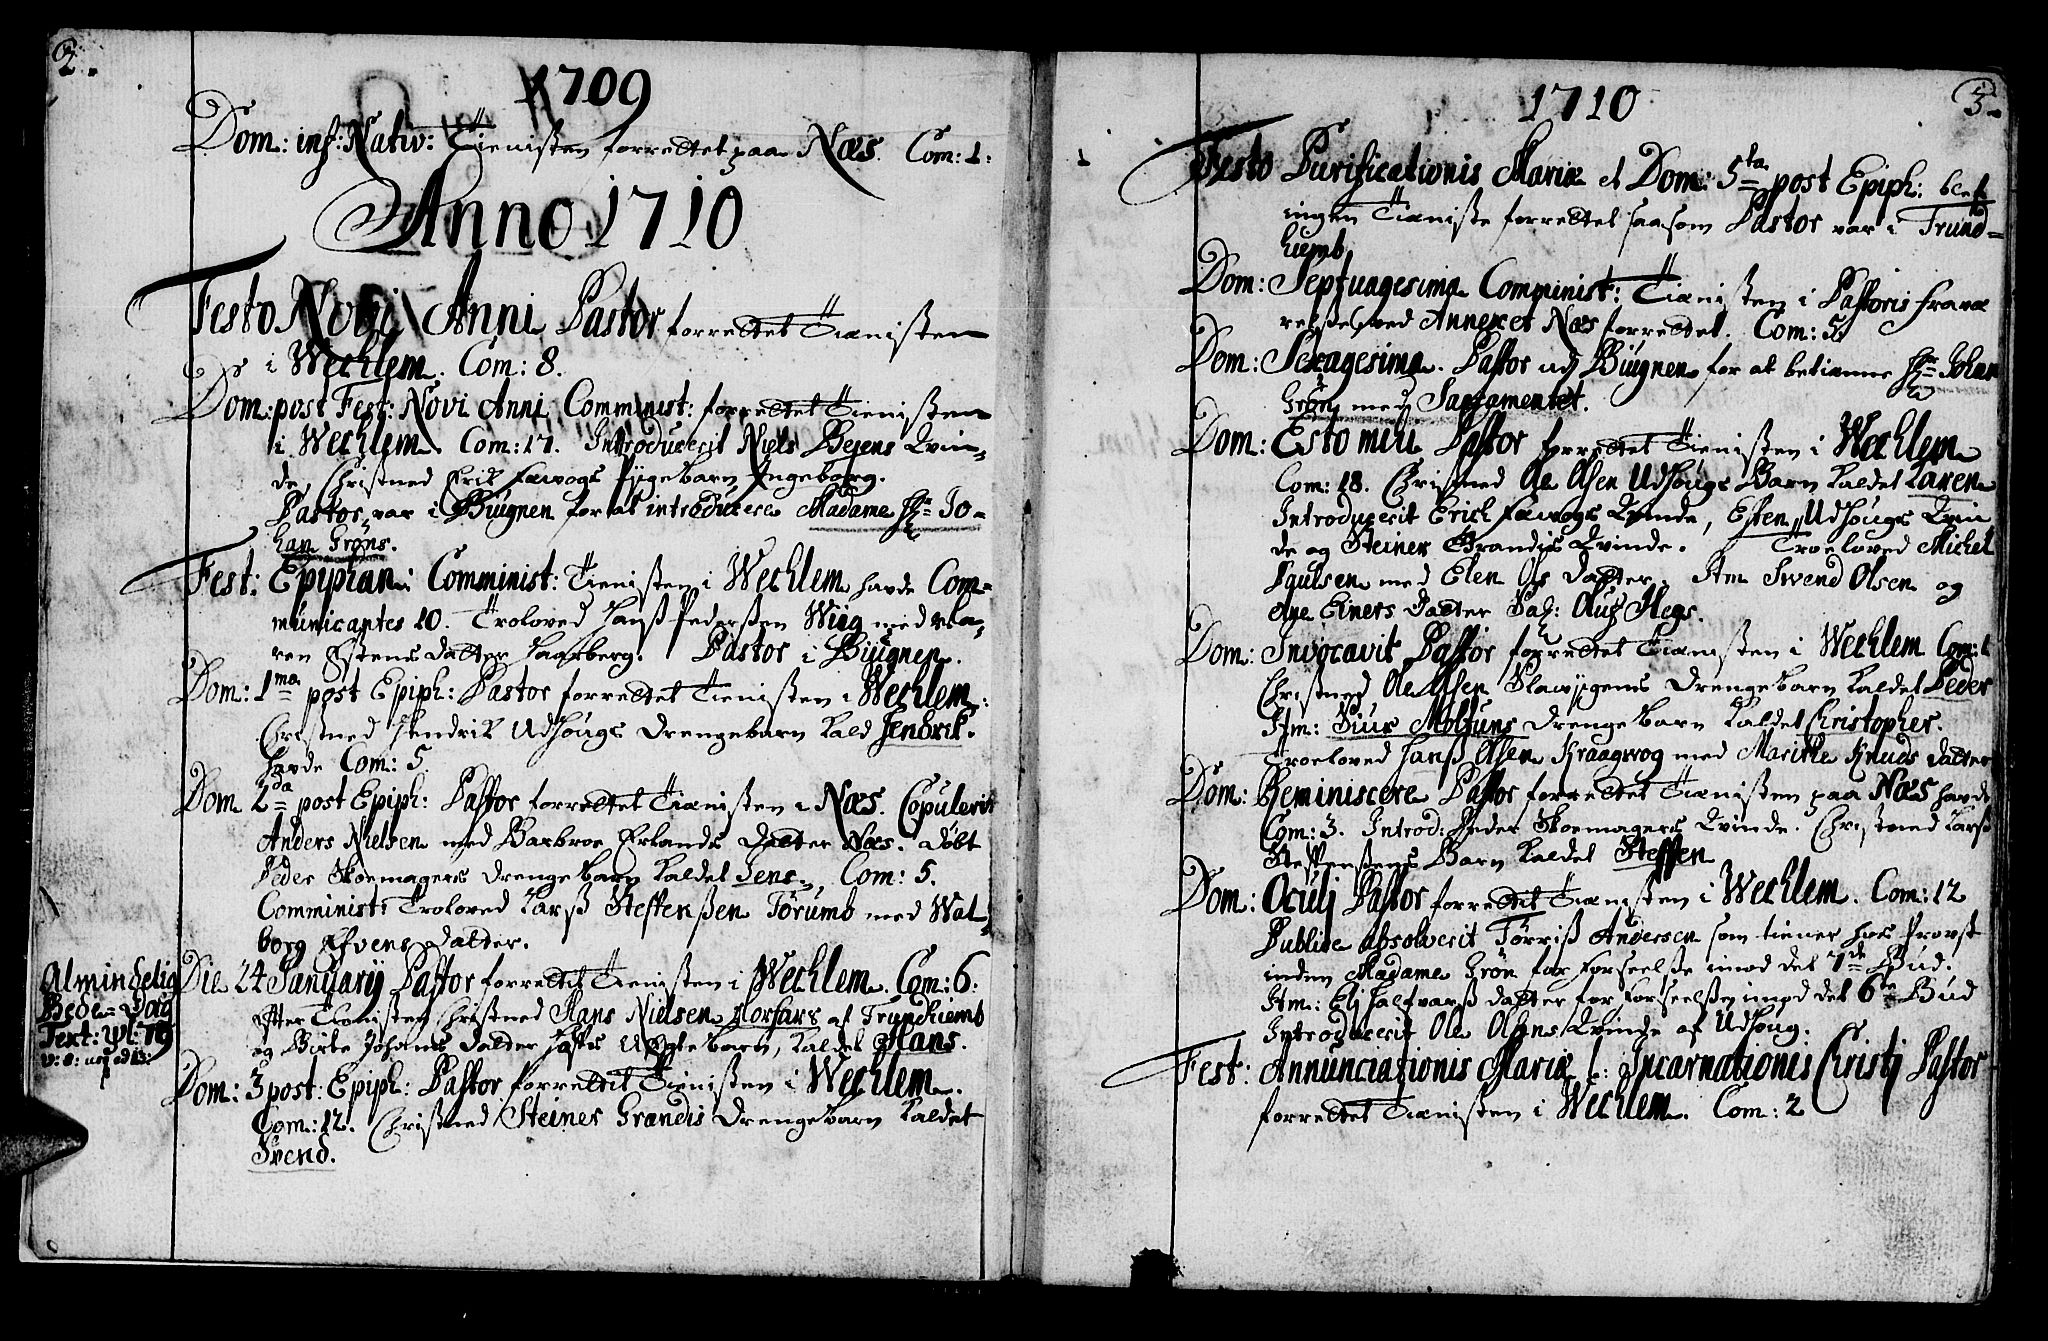 2.
1709
Dom: inf: Nativ: Tienisten forrettet paa Næs. Com: 1:
Anno 1710
Festo Novi Anni Pastor forrettet Tienisten
i Wechlem. Com: 8.
Dom: post Fest: Novi Anni Comminist: forrettet Tienisten
i Wechlem. Com: 17. Introducerit Niels Bejens Qvin-
de, Christned Erik Fævogs Pigebarn Ingeborg.
Pastor var i Biugnen for at introducere Madame Hr Jo-
han Grøns.
Fest: Epiphan: Comminist: Tienisten i Wechlem havde Com-
municantes 10. Troloved Hanss Pederssen Wiig med Ma-
ren Estens Datter Haarberg. Pastor i Biugnen.
Dom: 1ma post Epiph: Pastor forrettet Tienisten i Wechlem.
Christned Hendrik Udhougs Drengebarn kald Hendrik.
havde Com: 5
Dom 2da post Epiph: Pastor forrettet Tienisten i Næs. Copulerit
Anders Nielsen med Barbroe Erlands Datter Næs. Døbt
Peder Skoemagers Drengebarn kaldet Jens. Com: 5.
Comminist: Troloved Larss Steffenssen Törumb med Wal-
borg Efvens Datter.
Almindelig
Bede-Dag
Text: Ps: 79
v: 8: usq ad 13:
Die 24 Januarij Pastor forrettit Tienisten i Wechlem. Com: 6:
Efter Tienisten Christned Hans Nielsen Morfars af Trundhiemb
og Birte Johans Datter Hoffs Uægte barn, kaldet Hans.
Dom: 3 post: Epiph: Pastor forrettit Tienisten i Wechlem.
Com: 12. Christned Steiner Grandis Drengebarn kaldet
Svend.
3.
1710
Festo Purificationis Mariæ et Dom: 5ta post Epiph: blef
ingen Tieniste forrettet saasom Pastor var i Trund-
hiemb
Dom: Septuagesima Comminist: Tienisten i Pastoris fravæ
relsse, ved Annexet Næs forrettet. Com: 5.
Dom: Sexagesima. Pastor ud Biugnen for at betiænne Hr Johan
Grøn med Sacramentet.
Dom: Esto mihi Pastor forrettet Tienisten i Wechlem
Com: 18. Christned Ole Olsen Udhougs Barn kaldet Karen
Introducerit Erich Fævogs Qvinde, Esten Udhougs Qvin
de og Steiner Grandis Qvinde. Troeloved Michel
Paulsen med Elen Ols Datter. Itm Swend Olsen og
Ane Einers Datter
Dom: Invocavit Pastor forrettet Tienisten i Wechlem Com: 1
Christned Ole Olsen Drengebarn kaldet Peder
Itm: Drengebarn kaldet Christopher.
Troeloved Hanss Olsen Kraagwog med Maritte Knuds Datter
Dom: Reminiscere Pastor forrettet Tienisten paa Næs havde
Com: 3. Introd: Peder Skoemagers Qvinde. Christned Larss
Steffenssens Barn kaldet Steffen
Dom: Oculj Pastor forrettit Tienisten i Wechlem. Com: 12
Publice absolverit Törriss Andersen som tiener hos Provst
inden Madame Grøn for Forseelsse imod det 7de Bud.
Itm: Elj Halfvarss Datter for Forseelssen imod det 6te Bud
Introducerit Ole Olsens Qvinde af Udhoug.
Fest: Annunciationis Mariæ l: Incarnationis Christj Pastor
forrettet Tienisten i Wechlem. Com: 2